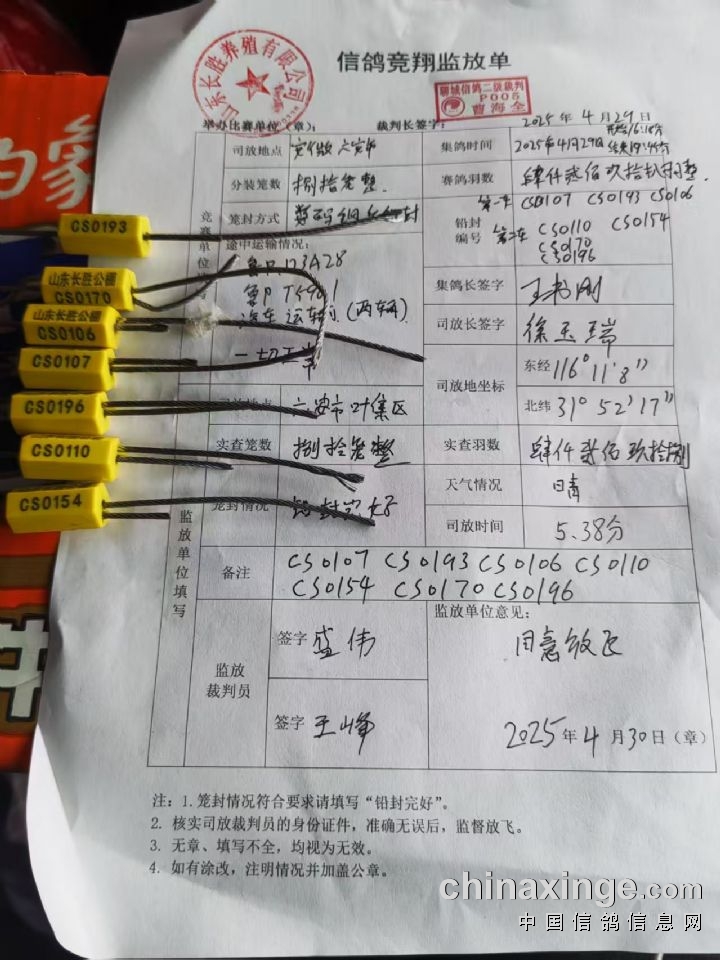 信鸽竞翔监放单
山东长胜养殖有限公司
聊城信鸽二级裁判
P005
曹海全
举办比赛单位(章): 裁判长签字: 2025年4月29日
司放地点 六安市 集鸽时间 2025年4月29日
分装笼数 捌拾笼整 赛鸽羽数
笼封方式 铅封编号 CS0107 CS0193 CS0106
CS0110 CS0154
CS0170
CS0196
竞赛单位
途中运输情况:
(两辆)
一切正常
集鸽长签字
司放长签字 徐玉瑞
司放地坐标 东经 116°11′8″
北纬 31°52′17″
六安市叶集区
实查笼数 捌拾笼整 实查羽数 肆仟贰佰玖拾捌
天气情况 晴
笼封情况 司放时间 5.38分
监放单位填写
备注 CS0107 CS0193 CS0106 CS0110
CS0154 CS0170 CS0196
监放裁判员 签字 盛伟
签字 王峰
监放单位意见:
同意放飞
2025年4月30日(章)
注:1.笼封情况符合要求请填写“铅封完好”。
2. 核实司放裁判员的身份证件,准确无误后,监督放飞。
3. 无章、填写不全,均视为无效。
4. 如有涂改,注明情况并加盖公章。
CS0193
山东长胜公棚
CS0170
山东长胜公棚
CS0106
CS0107
CS0196
CS0110
CS0154
chinaxinge.com
中国信鸽信息网